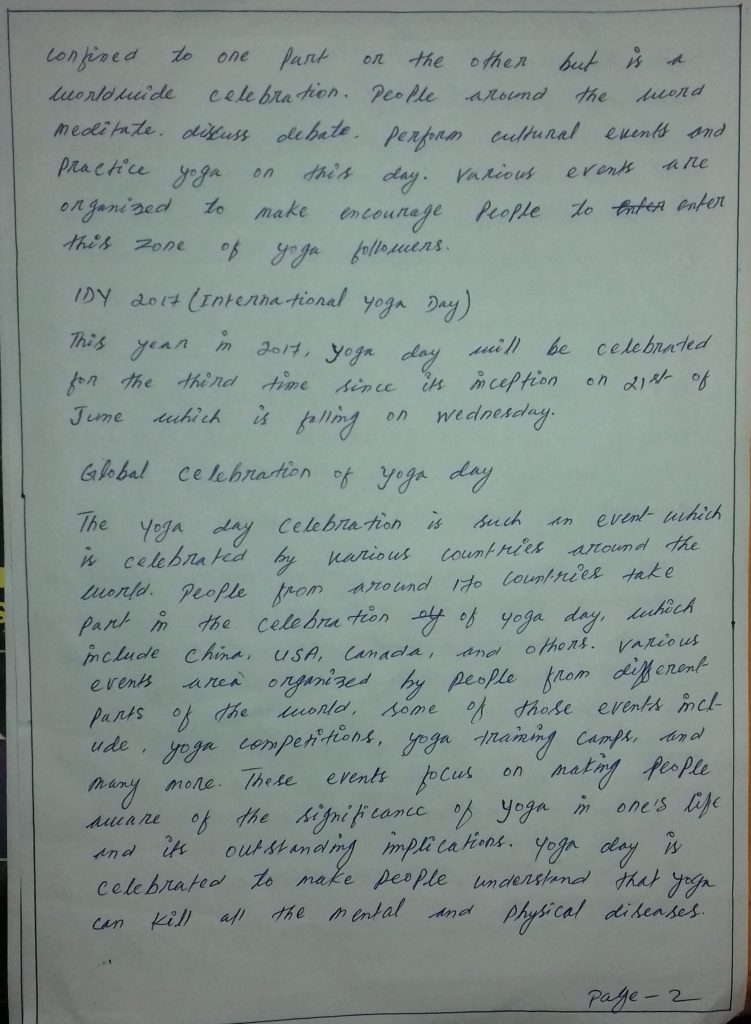 confined to one part or the other but is a
worldwide celebration. People around the word
meditate, discuss debate, perform cultural events and
practice yoga on this day. various events are
organized to make encourage people to enter enter
this zone of yoga followers.
IDY 2017 (International Yoga Day)
This year in 2017, yoga day will be celebrated
for the third time since its inception on 21st of
June which is falling on wednesday.
Global celebration of yoga day
The yoga day celebration is such an event which
is celebrated by various countries around the
world. People from around 170 countries take
part in the celebration of of yoga day, which
include China, USA, Canada, and others. various
events area organized by people from different
parts of the world, some of those events incl-
ude, yoga competitions, yoga training camps, and
many more. These events focus on making people
aware of the significance of yoga in one's life
and its outstanding implications. yoga day is
celebrated to make people understand that yoga
can kill all the mental and physical diseases.
Page - 2